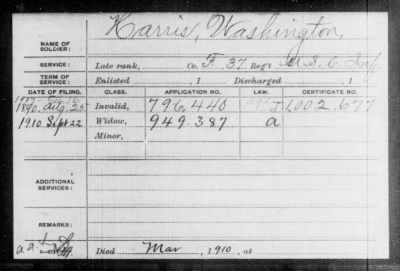 Harris, Washington,
NAME OF
SOLDIER:
SERVICE:
Late rank, Co. F. 37 Reg't U.S.C. Inf.
TERM OF
SERVICE:
Enlisted , 1 Discharged , 1
DATE OF FILING. CLASS. APPLICATION NO. LAW. CERTIFICATE NO.
1890. Aug. 25 Invalid, 796.440 1,002.677
1910 Sept 22 Widow, 949.387 a
Minor,
ADDITIONAL
SERVICES:
REMARKS:
Died Mar , 1910, at